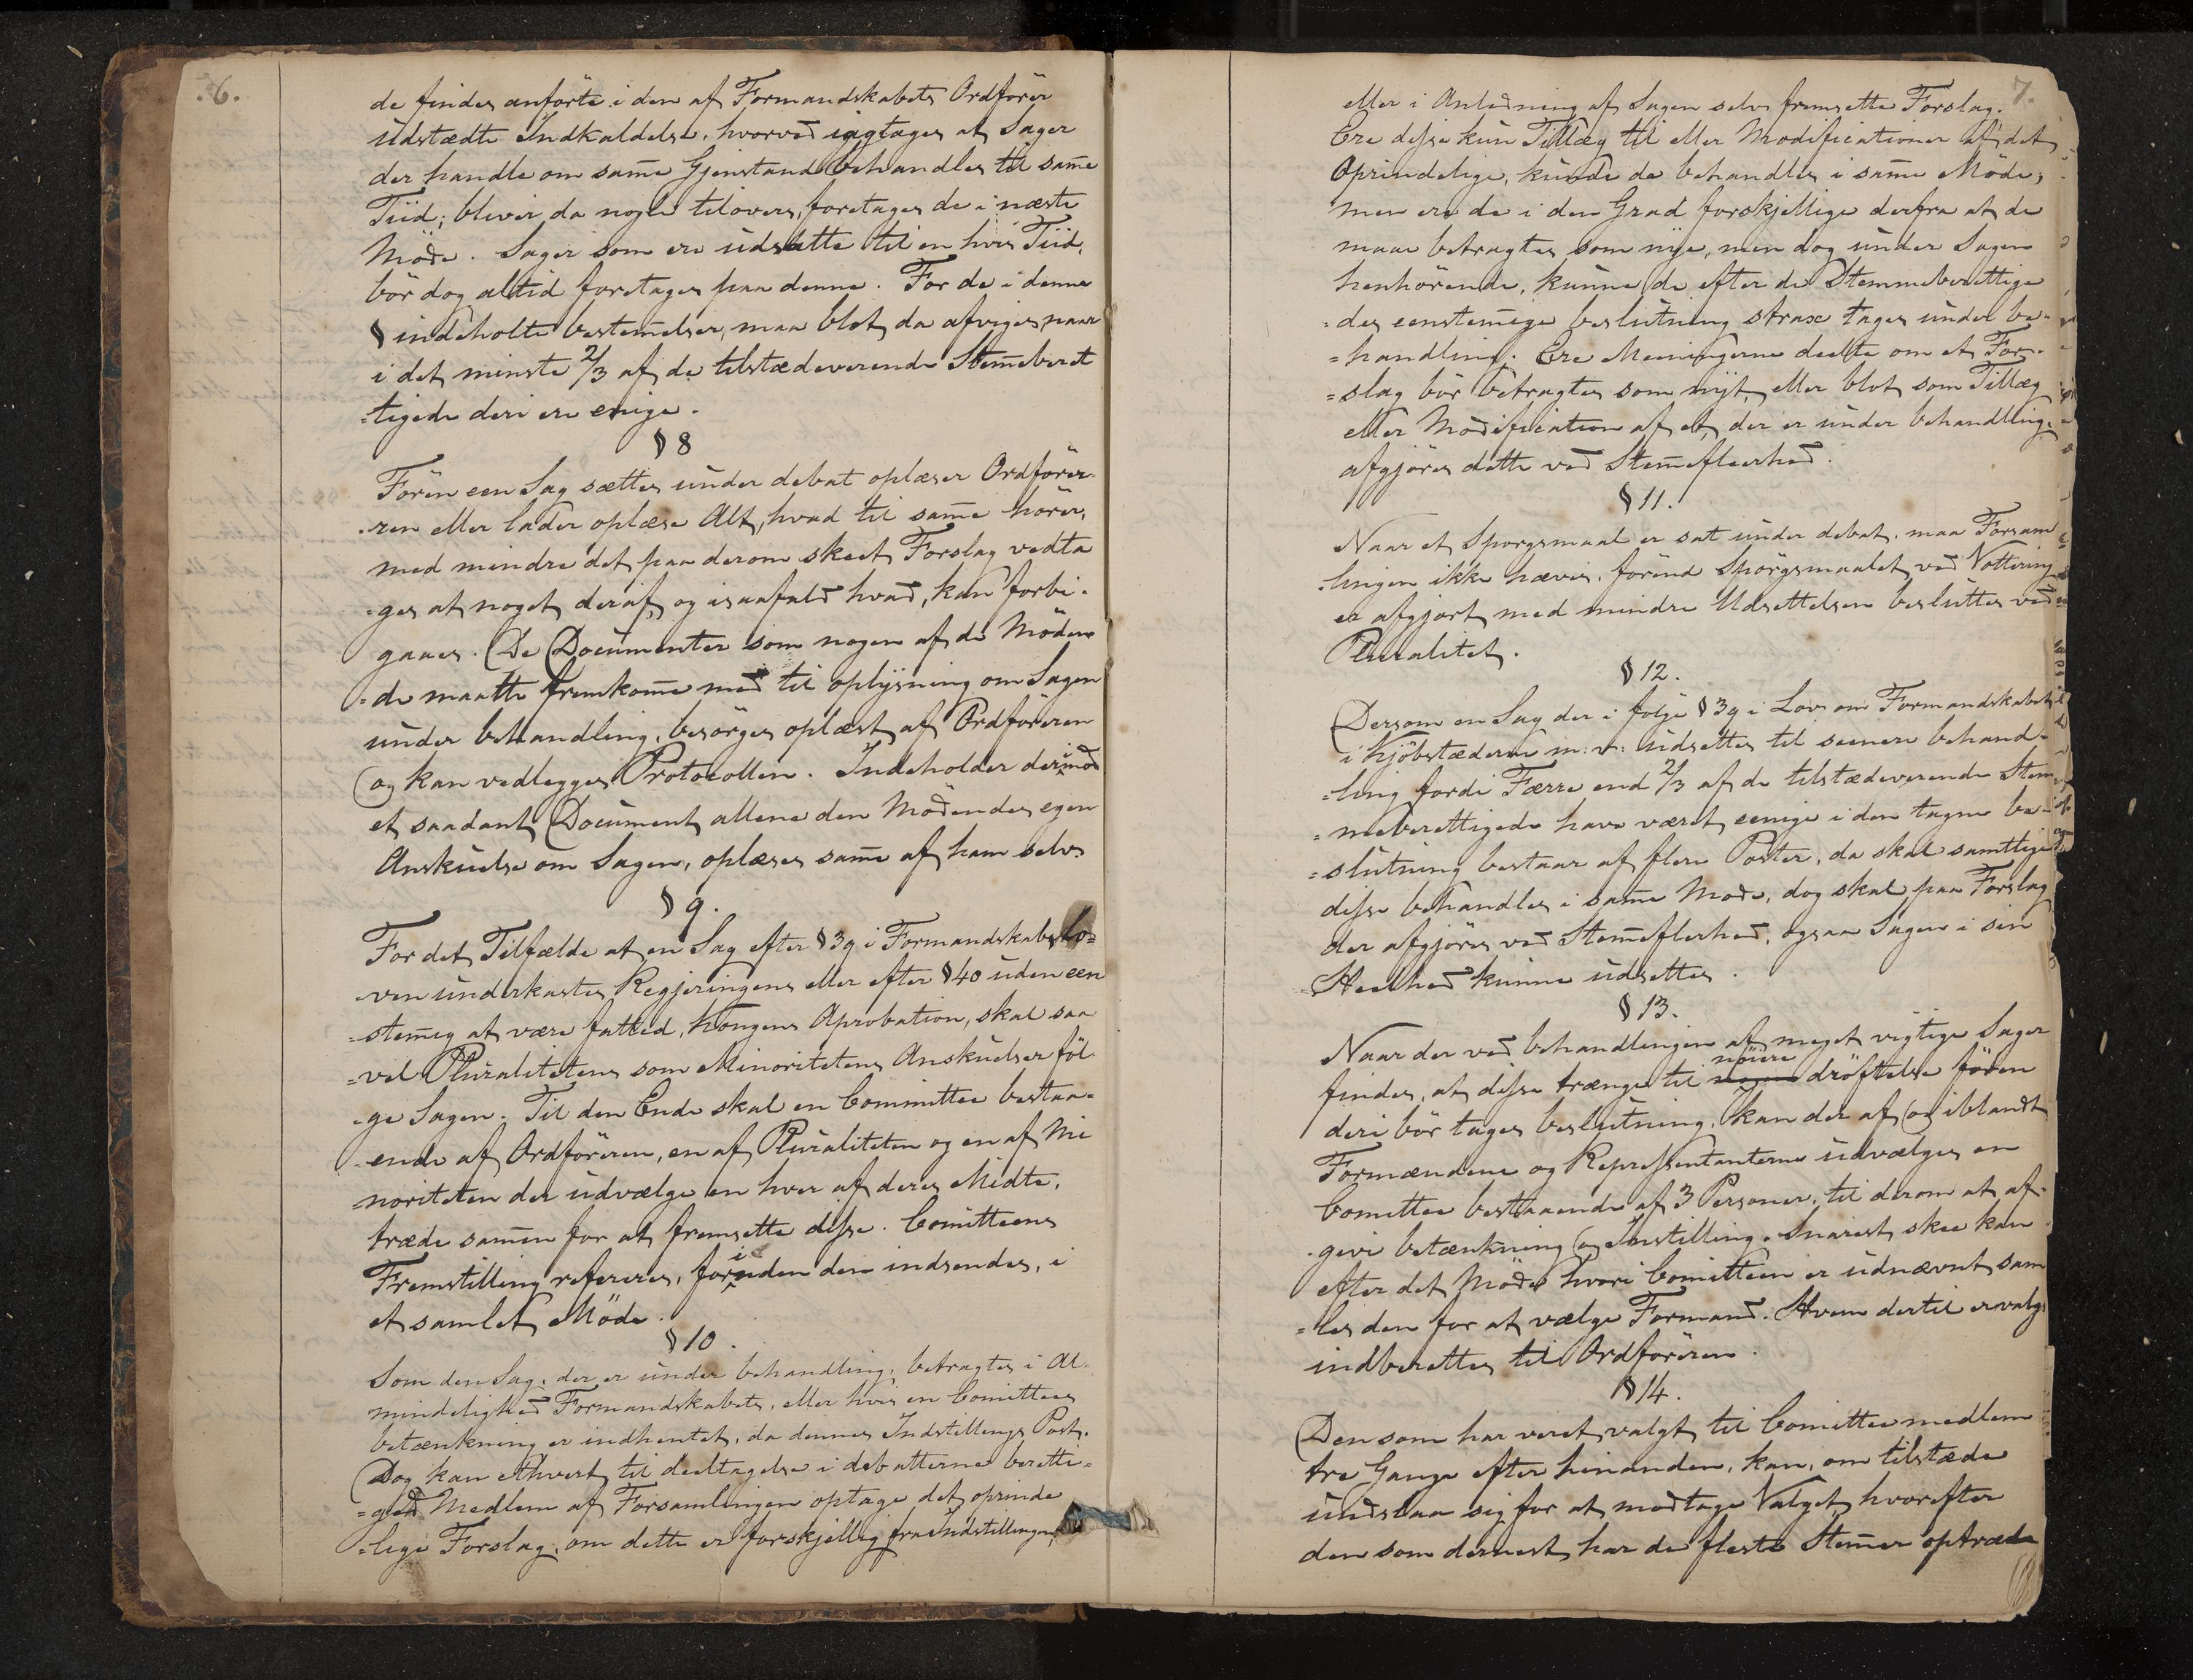 .6.
de findes anförte i den af Formandskabets Ordförer
udstædte Indkaldelse, hvorved iagtages at Sager
der handle om sam̄e Gjenstand behandles til sam̄e
Tiid; bliver da nogle tilovers, foretages de i næste
Möde. Sager som ere udsatte til en hvis Tiid,
bör dog altid foretages paa denne. For de i denne
§ indeholte bestem̄elser, maa blot da afviges, naar
i det minste 2/3 af de tilstædeverende Stem̄eberet
=tigede deri ere enige.
§ 8
Fören een Sag sættes under debat oplæser Ordföre
=ren eller lader oplæse Alt, hvad til sam̄e hörer,
med mindre det paa derom skeet Forslag vedta
=ges at noget deraf, og isaafald hvad, kan forbi=
gaaes. De Documenter som nogen af de Möden
=de maatte fremkom̄e med til oplysning om Sagen
under behandling, besörges oplæst af Ordföreren
og kan vedlegges Protocollen. Indeholder derimod
et saadant Document allene den Mödendes egen
Anskuelse om Sagen, oplæses sam̄e af ham selv.
§ 9.
For det Tilfælde at en Sag efter § 39 i Formandskabslo=
ven underkastes Regjeringens eller efter § 40 uden een
=stem̄ig at være fatted, Kongens Aprobation, skal saa
=vel Pluralitetens som Minoritetens Anskuelser föl
=ge Sagen. Til den Ende skal en Committee bestaa=
=ende af Ordföreren, en af Pluraliteten og en af Mi
=noriteten der udvælge en hver af deres Midte,
træde sam̄en for at fremsette disse. Comitteens
Fremstilling refereres, forinden den indsendes, i
et samlet Möde.
§ 10.
Som den Sag, der er under behandling, betragtes i Al=
mindelighed Formandskabets, eller hvis en Comittees
betænkning er indhentet, da dennes Indstillings Post.
Dog kan ethvert til deeltagelse i debatterne beretti=
=ged Medlem af Forsamlingen optage det oprinde
=lige Forslag, om dette er forskjellig fra Indstillingen,
7.
eller i Anledning af Sagen selv fremsette Forslag.
Ere disse kun Tillæg til eller Modificationer af det
Oprindelige, kunde de behandles i samme Möde;
men ere de i den Grad forskjellige derfra at de
maae betragtes som nye, men dog under Sagen
henhörende, kunne de efter de Stemmeberettige
=des eenstem̄ige beslutning strax tages under be=
=handling. Ere Meeningerne deelte om et For=
=slag bör betragtes som nyt, eller blot som Tillæg
eller Modification af et, der er under behandling,
afgjöres dette ved Stem̄efleerhed.
§ 11.
Naar et Sporgsmaal er sat under debat, maa Forsam
=lingen ikke hæves, förend Spörgsmaalet ved Vottering
er afgjort med mindre Udsettelsen besluttes ved
Pluralitet.
§ 12.
Dersom en Sag der i fölge § 39 i Lov om Formandskabet
i Kjöbstæderne m: v: udsettes til seenere behand=
=ling fordi Færre end 2/3 af de tilstædeverende Stem
=meberettigede have været eenige i den tagne be=
=slutning bestaar af flere Poster, da skal samtlige
disse behandles i sam̄e Mode, dog skal paa Forslag
der afgjöres ved Stem̄eflerhed, ogsaa Sagen i sin
Heelhed kunne udsettes.
§ 13.
Naar der ved behandlingen af meget vigtige Sager
findes, at disse trænge til nöiere dröftelse fören
deri bör tages beslutning, kan der af og iblandt
Formændene og Repressentanterne udvælges en
Comittee bestaaende af 3 Personer, til derom at af=
=give betænkning og Instilling. Snarest skee kan
efter det Möde hvori Comitteen er udnævnt, sam
=les den for at vælge Formand. Hvem dertil er valgt
indberettes til Ordföreren.
§ 14.
Den som har veret valgt til Comitteemedlem
tre Gange efter hinanden, kan, om tilstæde
undslaa sig for at modtage Valget, hvorefter
den som dernest har de fleste Stem̄er optræde